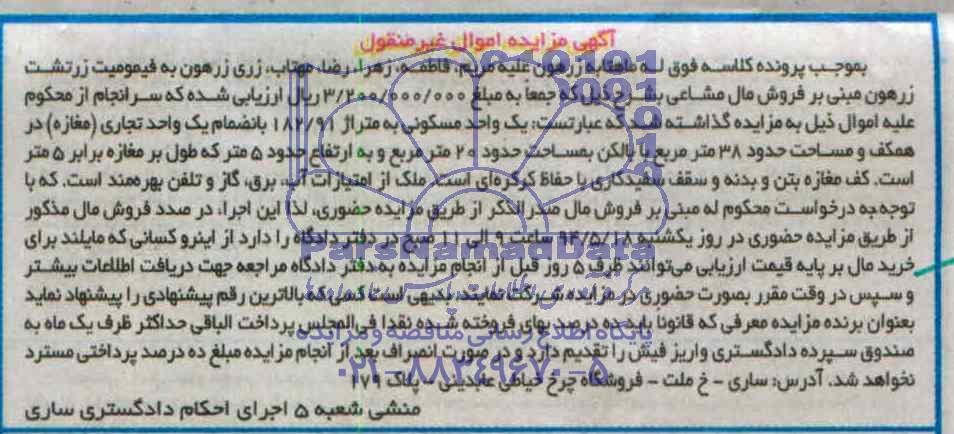 آگهی مزایده اموال غیرمنقول
بموجب پرونده کلاسه فوق له ماهتابه زرهون علیه مریم، فاطمه، زهرا، رضا، مهتاب، زری زرهون به قیمومیت زرتشت
زرهون مبنی بر فروش مال مشاعی بشرح ذیل که جمعاً به مبلغ ۳/۲۰۰/۰۰۰/۰۰۰ ریال ارزیابی شده که سرانجام از محکوم
علیه اموال ذیل به مزایده گذاشته شد که عبارتست: یک واحد مسکونی به متراژ ۱۸۲/۹۱ بانضمام یک واحد تجاری (مغازه) در
همکف و مساحت حدود ۳۸ متر مربع با بالکن بمساحت حدود ۲۰ متر مربع و به ارتفاع حدود ۵ متر که طول بر مغازه برابر ۵ متر
است. کف مغازه بتن و بدنه و سقف سفیدکاری با حفاظ کرکره‌ای است. ملک از امتیازات آب، برق، گاز و تلفن بهره‌مند است. که با
توجه به درخواست محکوم له مبنی بر فروش مال صدرالذکر از طریق مزایده حضوری، لذا این اجرا، در صدد فروش مال مذکور
از طریق مزایده حضوری در روز یکشنبه ۹۴/۵/۱۸ ساعت ۹ الی ۱۱ صبح در دفتر دادگاه را دارد از اینرو کسانی که مایلند برای
خرید مال بر پایه قیمت ارزیابی می‌توانند ظرف ۵ روز قبل از انجام مزایده به دفتر دادگاه مراجعه جهت دریافت اطلاعات بیشتر
و سپس در وقت مقرر بصورت حضوری در مزایده شرکت نمایند. بدیهی است کسی که بالاترین رقم پیشنهادی را پیشنهاد نماید
بعنوان برنده مزایده معرفی که قانونا باید ده درصد بهای فروخته شده نقدا فی‌المجلس پرداخت الباقی حداکثر ظرف یک ماه به
صندوق سپرده دادگستری واریز فیش را تقدیم دارد و در صورت انصراف بعد از انجام مزایده مبلغ ده درصد پرداختی مسترد
نخواهد شد. آدرس: ساری - خ ملت - فروشگاه چرخ خیاطی عابدینی - پلاک ۱۷۹
منشی شعبه ۵ اجرای احکام دادگستری ساری
ParsNamadData
پایگاه اطلاع رسانی مناقصه و مزایده
۰۲۱-۸۸۳۴۹۶۷۰-۵